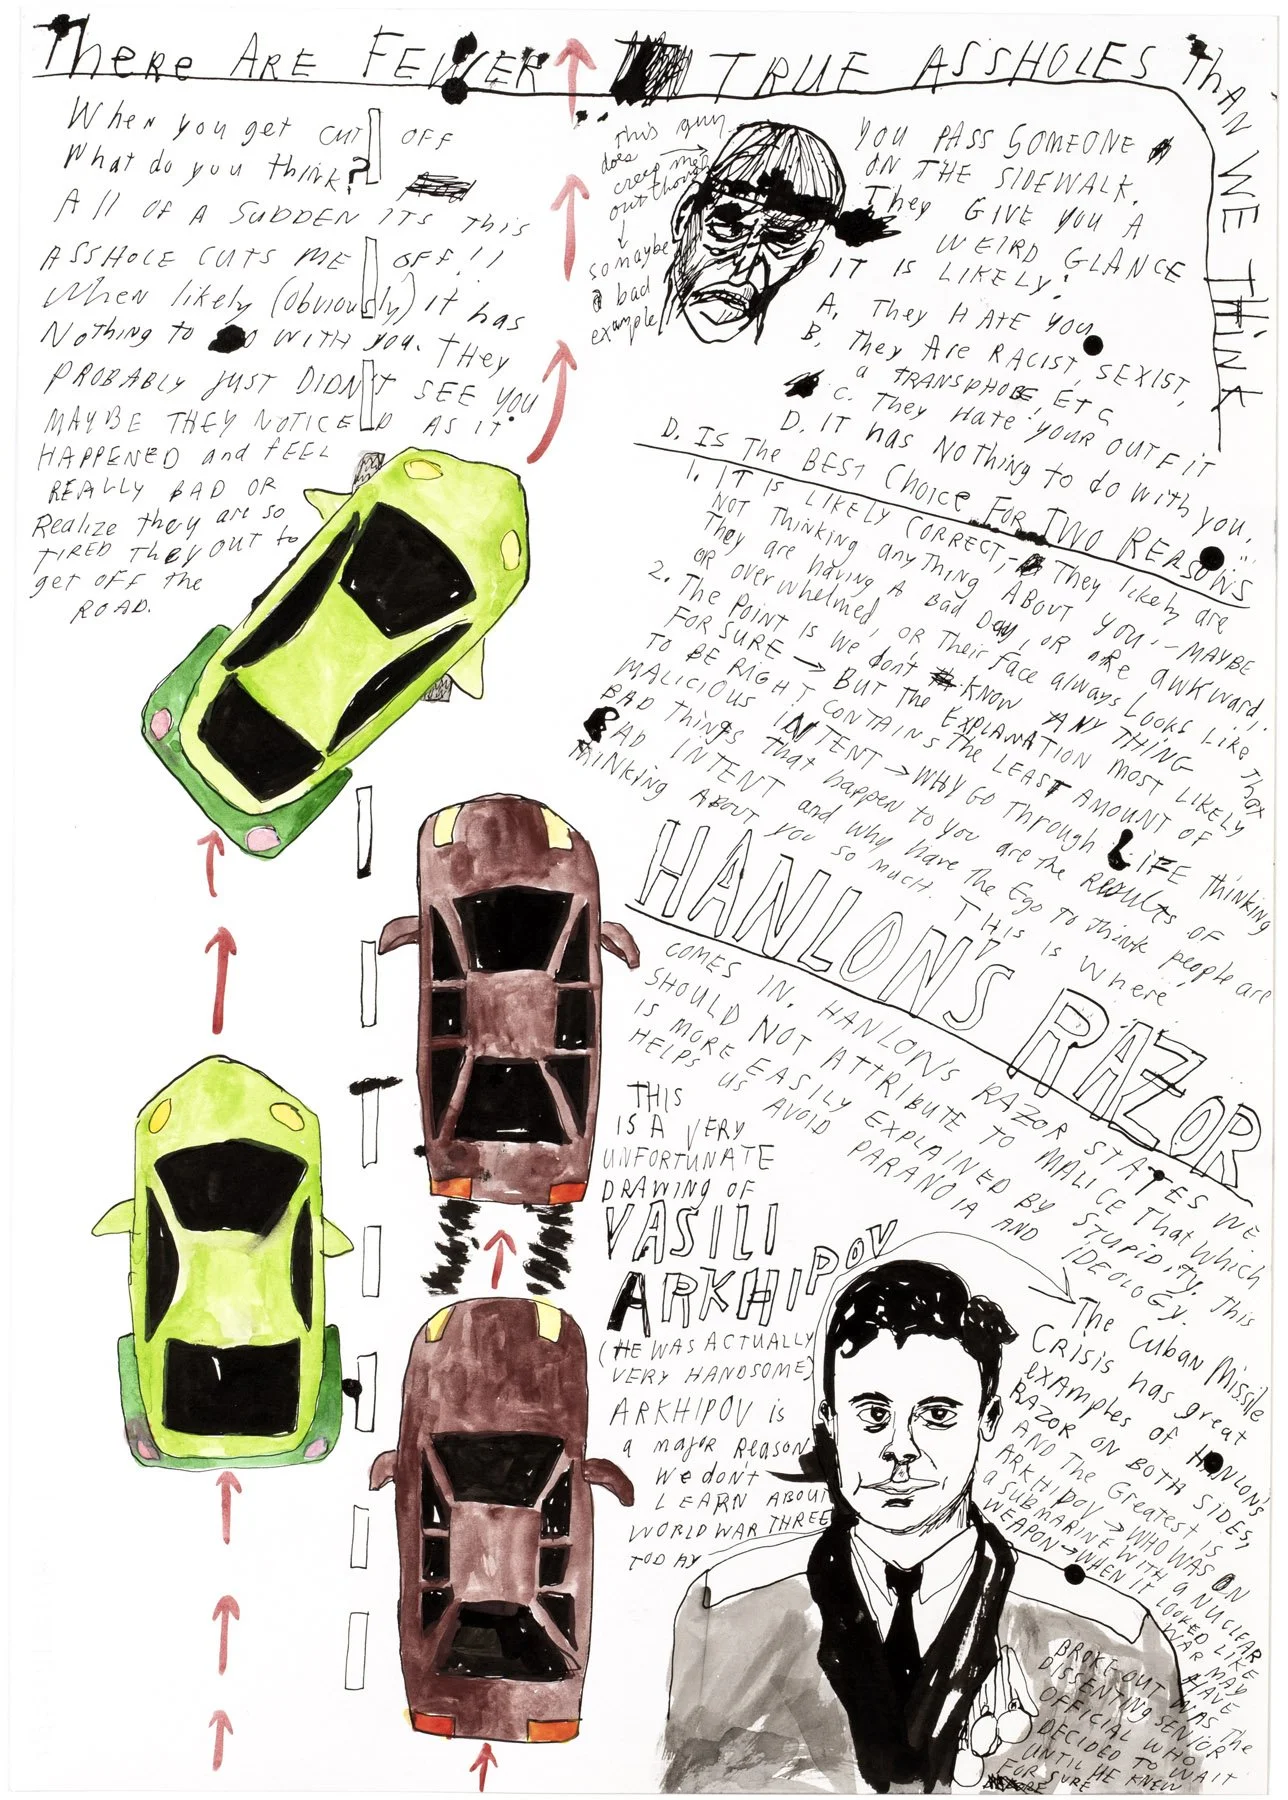 There ARE FEWER TRUE ASSHOLES Than WE THINK
When you get CUT OFF
What do you think?
All OF A SUDDEN ITS This
ASSHOLE CUTS ME OFF!!
When likely (obviously) it has
Nothing to do WITH you. THEY
PROBABLY JUST DIDN'T SEE YOU
MAYBE THEY NOTICED AS IT
HAPPENED and FEEL
REALLY BAD OR
Realize they are so
TIRED They OUT to
get OFF the
ROAD.
this guy
does
creep me
out though
so maybe
a bad
example
YOU PASS SOMEONE
ON THE SIDEWALK.
They GIVE YOU A
WEIRD GLANCE
IT IS LIKELY:
A. They HATE YOU
B. They ARE RACIST, SEXIST,
a TRANSPHOBE, ETC
C. They HATE YOUR OUTFIT
D. IT has NOTHING to do with you.
D. IS The BEST Choice FOR TWO REASONS
1. IT IS LIKELY CORRECT, - They likely are
NOT Thinking anything ABOUT YOU - MAYBE
They are having A Bad Day, OR are awkward,
OR overwhelmed, OR Their Face always Looks Like That
2. The POINT is we don't KNOW ANY THING
FOR SURE → BUT The EXPLANATION MOST LIKELY
TO BE RIGHT CONTAINS The LEAST AMOUNT OF
MALICIOUS INTENT → WHY GO Through LIFE Thinking
BAD Things That happen to you are the Results OF
BAD INTENT and why have The Ego To think people are
THINKING ABOUT YOU SO MUCH. THIS IS Where
HANLON'S RAZOR
COMES IN. HANLON'S RAZOR STATES WE
SHOULD NOT ATTRIBUTE TO MALICE That Which
IS MORE EASILY EXPLAINED BY STUPIDITY. This
HELPS US AVOID PARANOIA AND IDEOLOGY.
THIS
IS A VERY
UNFORTUNATE
DRAWING OF
VASILI
ARKHIPOV
(HE WAS ACTUALLY
VERY HANDSOME)
ARKHIPOV is
a major Reason
We don't
LEARN ABOUT
WORLD WAR THREE
TODAY
The Cuban Missile
Crisis has great
examples of HANLON'S
RAZOR ON BOTH SIDES,
AND The Greatest is
ARKHIPOV → WHO WAS ON
a SUBMARINE WITH a NUCLEAR
WEAPON → WHEN IT LOOKED LIKE
WAR MAY HAVE
BROKE OUT WAS The
DISSENTING SENIOR
OFFICIAL WHO
DECIDED TO WAIT
UNTIL HE KNEW
FOR SURE